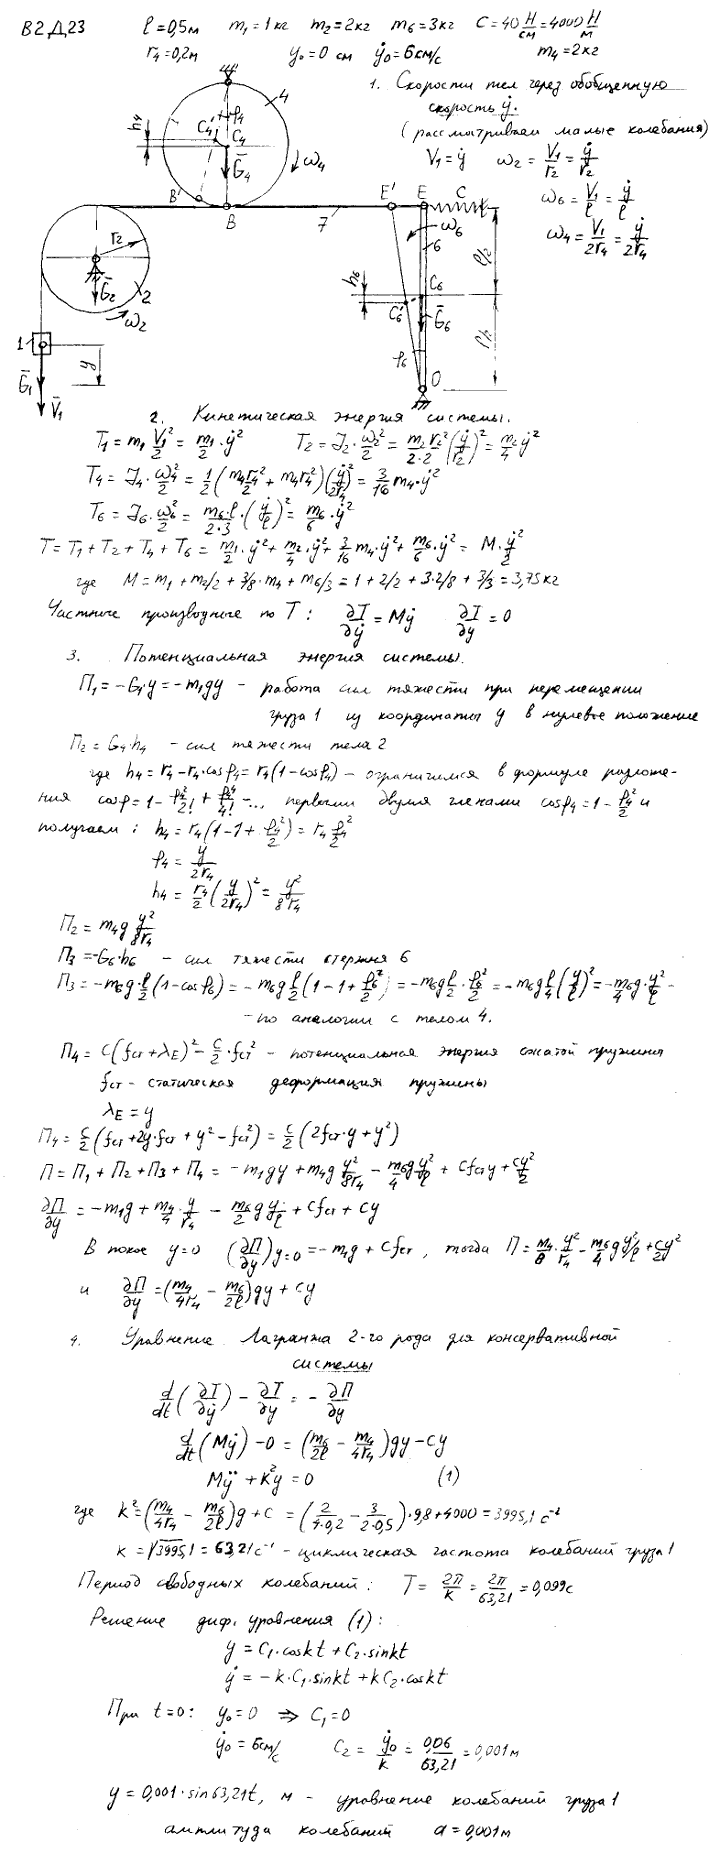 В2 Д23 ℓ=0,5м m₁=1кг m₂=2кг m₆=3кг C=40 Н/см=4000 Н/м
r₄=0,2м y₀=0 см ẏ₀=6км/с m₄=2кг
1. Скорости тел через обобщенную
скорость ẏ.
(рассматриваем малые колебания)
V₁=ẏ ω₂=V₁/r₂=ẏ/r₂
ω₆=V₁/ℓ=ẏ/ℓ
ω₄=V₁/2r₄=ẏ/2r₄
4
h₄
C₄' φ₄
C₄
G̅₄
ω₄
B' B
7
E' E C
ω₆
6
ℓ/2
h₆
C₆
C₆' G̅₆
ℓ/2
φ₆
O
r₂
G̅₂
2
ω₂
1
y
G̅₁
V̅₁
2. Кинетическая энергия системы.
T₁=m₁V₁²/2=m₁/2·ẏ² T₂=J₂·ω₂²/2=m₂r₂²/2·2(ẏ/r₂)²=m₂/4 ẏ²
T₄=J₄·ω₄²/2=1/2(m₄r₄²/2+m₄r₄²)(ẏ/2r₄)²=3/16 m₄·ẏ²
T₆=J₆·ω₆²/2=m₆·ℓ/2·3·(ẏ/ℓ)²=m₆/6·ẏ²
T=T₁+T₂+T₄+T₆=m₁/2·ẏ²+m₂/4·ẏ²+3/16 m₄·ẏ²+m₆/6·ẏ²=M·ẏ²/2
где M=m₁+m₂/2+3/8·m₄+m₆/3=1+2/2+3·2/8+3/3=3,75кг
Частные производные по T: ∂T/∂ẏ=Mẏ ∂T/∂y=0
3. Потенциальная энергия системы.
П₁=-G₁·y=-m₁gy - работа сил тяжести при перемещении
груза 1 из координаты y в нулевое положение
П₂=G₄·h₄ - сил тяжести тела 2
где h₄=r₄-r₄·cosφ₄=r₄(1-cosφ₄) - ограничимся в формуле разложе-
ния cosφ=1-φ²/2!+φ⁴/4!-... первыми двумя членами cosφ₄=1-φ₄²/2 и
получаем: h₄=r₄(1-1+φ₄²/2)=r₄φ₄²/2
φ₄=y/2r₄
h₄=r₄/2(y/2r₄)²=y²/8r₄
П₂=m₄g y²/8r₄
П₃=-G₆·h₆ - сил тяжести стержня 6
П₃=-m₆g·ℓ/2(1-cosφ₆)=-m₆gℓ/2(1-1+φ₆²/2)=-m₆gℓ/2·φ₆²/2=-m₆gℓ/4(y/ℓ)²=-m₆/4g·y²/ℓ-
-по аналогии с телом 4.
П₄=C(fст+λE)²-C/2·fст² - потенциальная энергия сжатой пружины
fст - статическая деформация пружины
λE=y
П₄=C/2(fст+2y·fст+y²-fст²)=C/2(2fст·y+y²)
П=П₁+П₂+П₃+П₄=-m₁gy+m₄g y²/8r₄-m₆g/4 y²/ℓ+Cfстy+cy²/2
∂П/∂y=-m₁g+m₄/4·y/r₄-m₆/2 g y/ℓ+Cfст+Cy
В покое y=0 (∂П/∂y)y=0=-m₁g+Cfст, тогда П=m₄/8·y²/r₄-m₆/4 g y²/ℓ+C/2 y²
и ∂П/∂y=(m₄/4r₄-m₆/2ℓ)gy+Cy
4. Уравнение Лагранжа 2-го рода для консервативной
системы
d/dt(∂T/∂ẏ)-∂T/∂y=-∂П/∂y
d/dt(Mẏ)-0=(m₆/2ℓ-m₄/4r₄)gy-Cy
Mÿ+K²y=0 (1)
где K²=(m₄/4r₄-m₆/2ℓ)g+C=(2/4·0,2-3/2·0,5)·9,8+4000=3995,1 с⁻²
K=√3995,1=63,21с⁻¹ - циклическая частота колебаний груза 1
Период свободных колебаний: T=2π/K=2π/63,21=0,099с
Решение диф. уравнения (1):
y=C₁·coskt+C₂·sinkt
ẏ=-k·C₁·sinkt+kC₂·coskt
При t=0: y₀=0 ⇒ C₁=0
ẏ₀=6см/с C₂=ẏ₀/k=0,06/63,21=0,001м
y=0,001·sin63,21t, м - уравнение колебаний груза 1
амплитуда колебаний a=0,001м